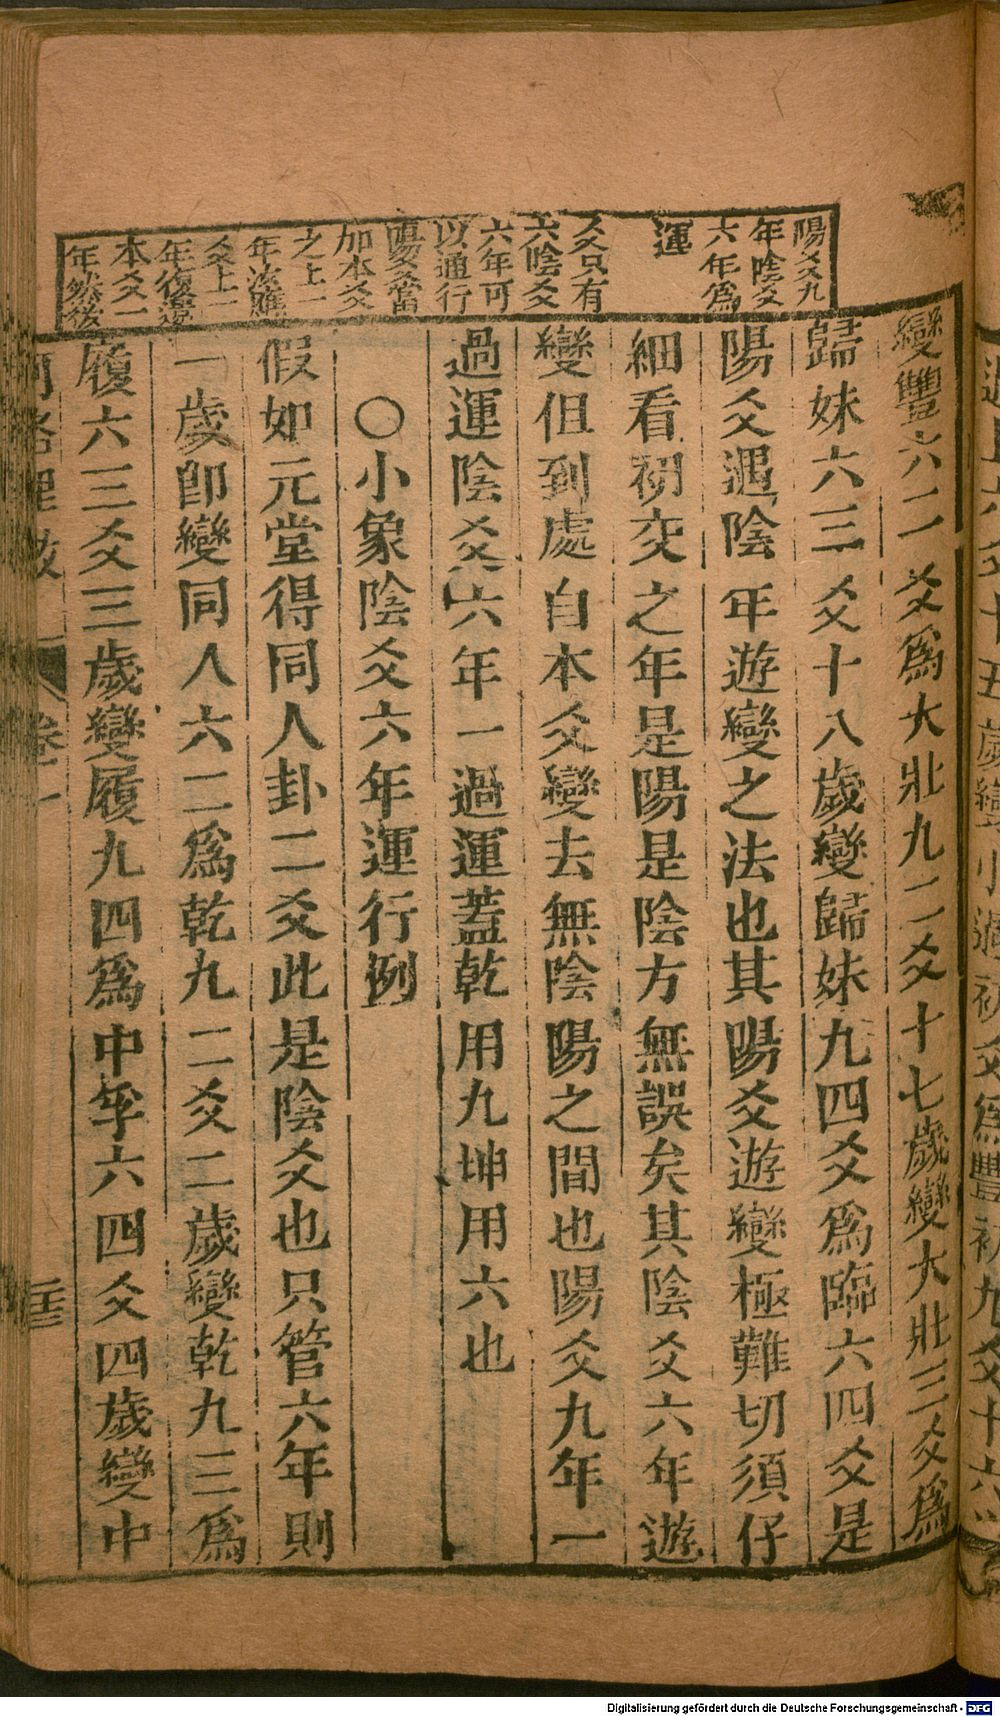 陽爻九
年陰爻
六年為
運
爻只有
六陰爻
六年可
以通行
陽爻當
加本爻
之上一
年法應
爻上一
年復還
本爻一
年然後
變豐六二爻為大壯九二爻十七歲變大壯三爻為
歸妹六三爻十八歲變歸妹九四爻為臨六四爻是
陽爻遇陰年遊變之法也其陽爻遊變極難切須仔
細看初交之年是陽是陰方無誤矣其陰爻六年遊
變但到處自本爻變去無陰陽之間也陽爻九年一
過運陰爻六年一過運蓋乾用九坤用六也
○小象陰爻六年運行例
假如元堂得同人卦二爻此是陰爻也只管六年則
一歲卽變同人六二為乾九二爻二歲變乾九三為
履六三爻三歲變履九四為中孚六四爻四歲變中
卷一
二十三
Digitalisierung gefördert durch die Deutsche Forschungsgemeinschaft - DFG